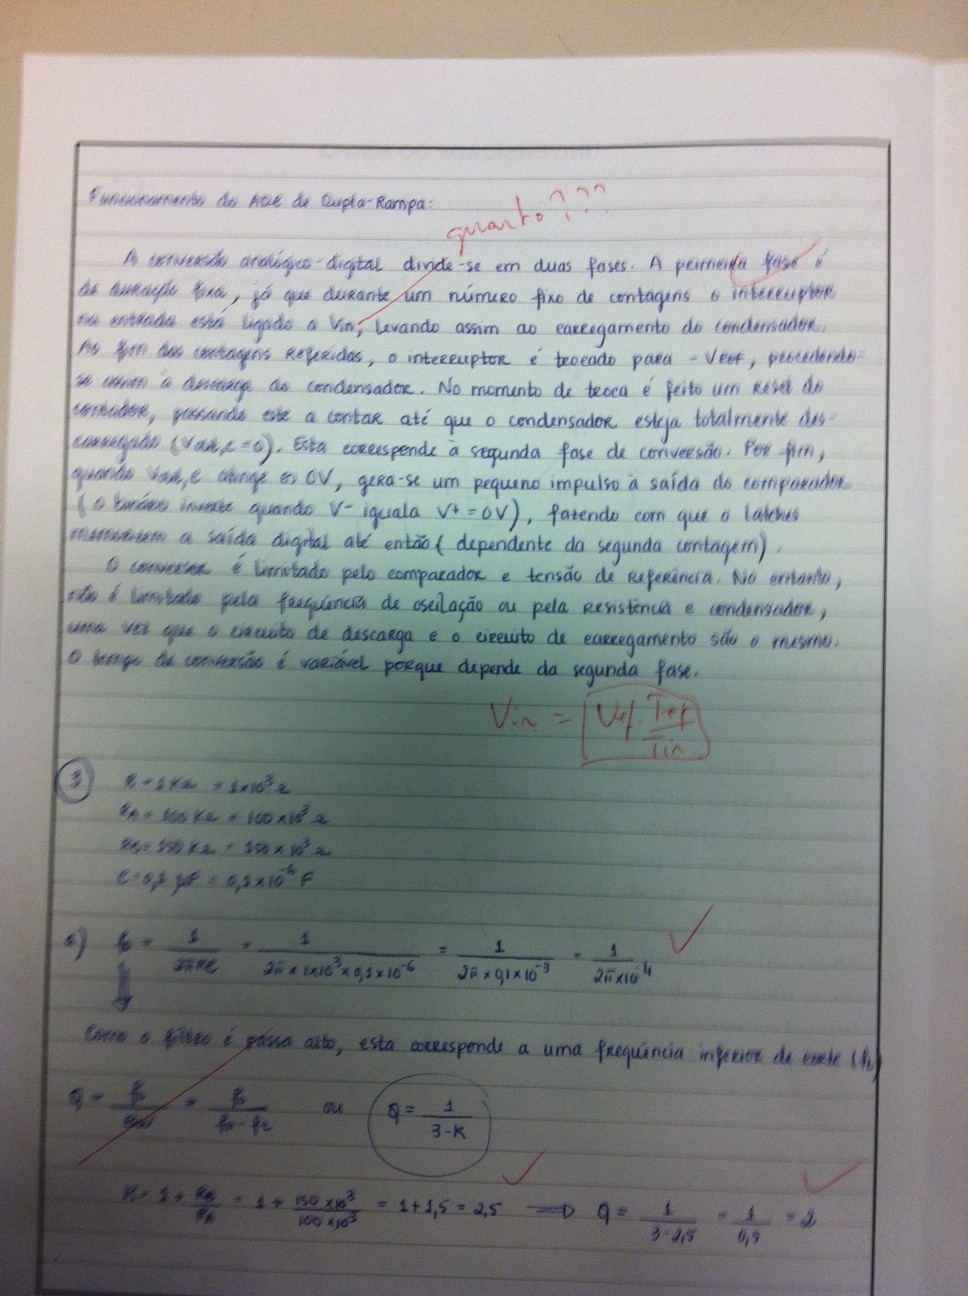 Funcionamento do ADC de Dupla-Rampa:
quanto???
A conversão analógico-digital divide-se em duas fases. A primeira fase é
de duração fixa, já que durante um número fixo de contagens o interruptor
na entrada está ligado a Vin, levando assim ao carregamento do condensador.
Ao fim das contagens referidas, o interruptor é trocado para -Vref, procedendo-
se assim à descarga do condensador. No momento de troca é feito um reset do
contador, passando este a contar até que o condensador esteja totalmente des-
carregado (            = 0). Esta corresponde à segunda fase de conversão. Por fim,
quando            atinge os 0V, gera-se um pequeno impulso à saída do comparador
(o                  quando V- iguala V+ = 0V), fazendo com que o latches
memorizem a saída digital até então (dependente da segunda contagem).
O conversor é limitado pelo comparador e tensão de referência. No entanto,
não é limitado pela frequência de oscilação ou pela resistência e condensador,
uma vez que o circuito de descarga e o circuito de carregamento são o mesmo.
O tempo de conversão é variável porque depende da segunda fase.
Vin = Vref. Tref / Tin
3 R = 1 KΩ = 1×10³ Ω
RA = 100 KΩ = 100×10³ Ω
RB = 150 KΩ = 150×10³ Ω
C = 0,1 μF = 0,1×10⁻⁶ F
a) f₀ = 1/2πRC = 1/2π×1×10³×0,1×10⁻⁶ = 1/2π×0,1×10⁻³ = 1/2π×10⁻⁴
Como o filtro é passa alto, esta corresponde a uma frequência inferior de corte (fL)
Q = f₀/BW = f₀/fH-fL ou Q = 1/3-K
K = 1 + RB/RA = 1 + 150×10³/100×10³ = 1+1,5 = 2,5 ⟹ Q = 1/3-2,5 = 1/0,5 = 2